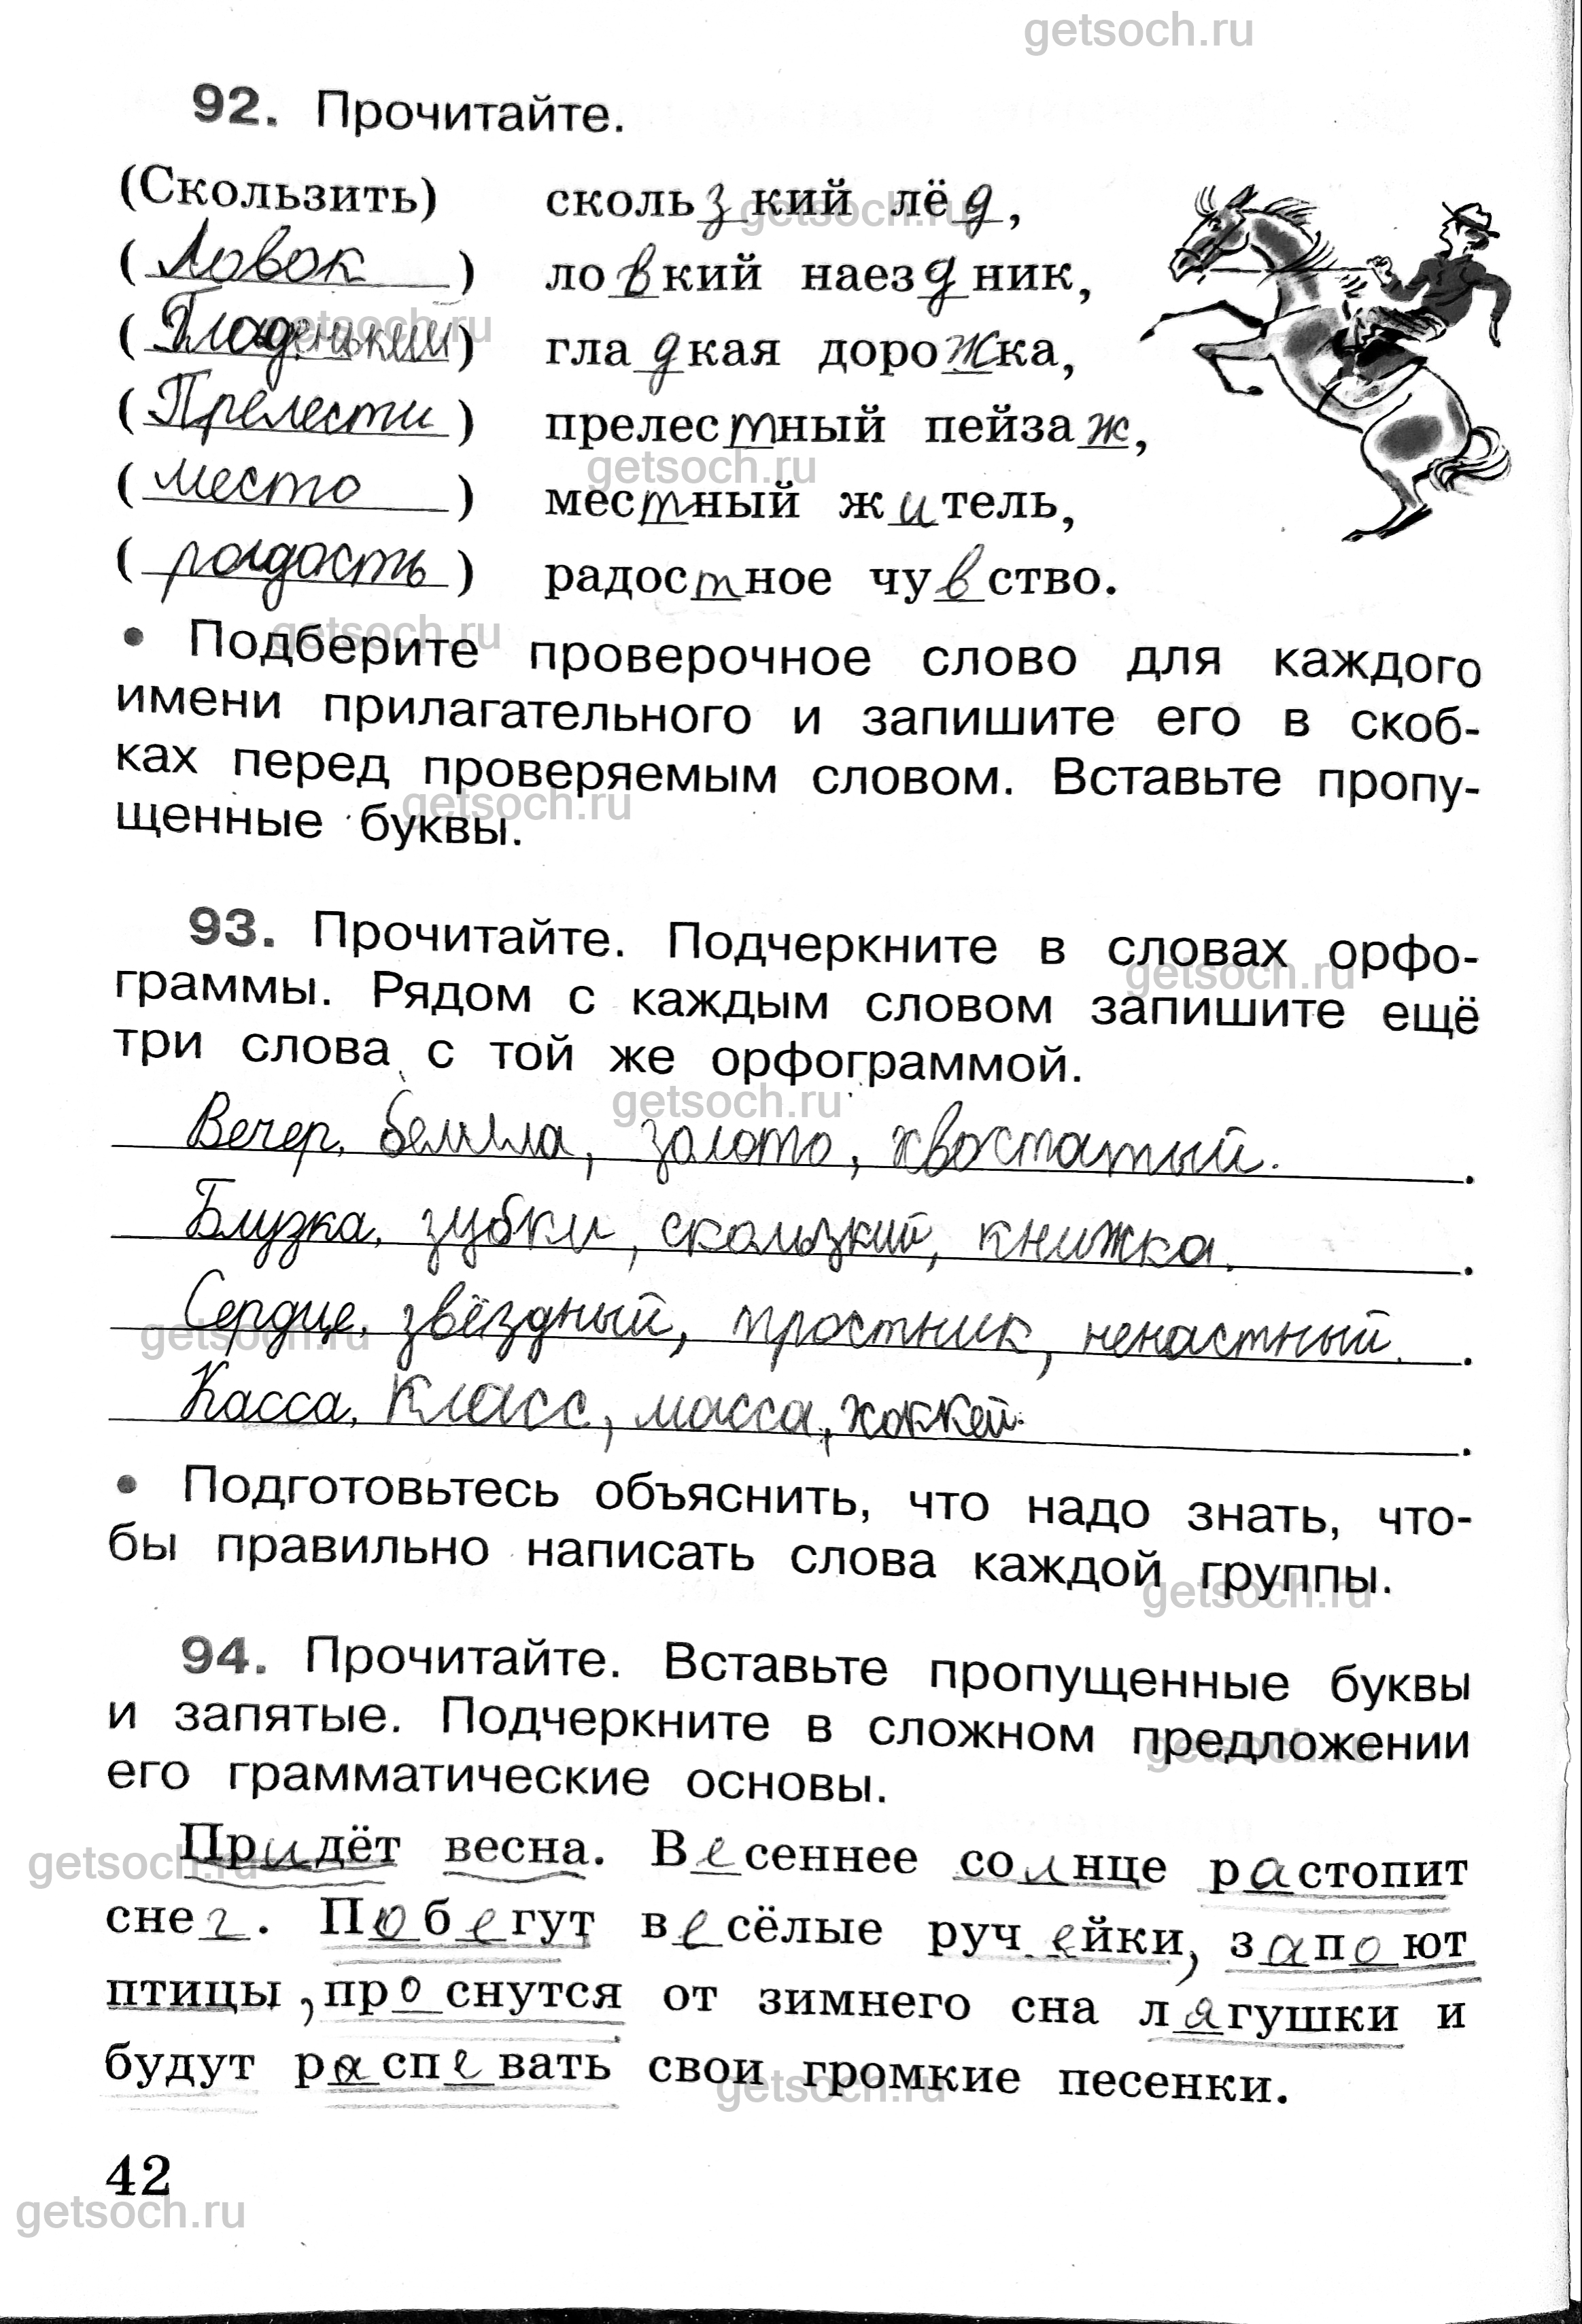 getsoch.ru
92. Прочитайте.
(Скользить) скользкий лёд,
(Ловок) ловкий наездник,
(Гладенький) гладкая дорожка,
(Прелести) прелестный пейзаж,
(место) местный житель,
(радость) радостное чувство.
• Подберите проверочное слово для каждого
имени прилагательного и запишите его в скоб-
ках перед проверяемым словом. Вставьте пропу-
щенные буквы.
93. Прочитайте. Подчеркните в словах орфо-
граммы. Рядом с каждым словом запишите ещё
три слова с той же орфограммой.
Вечер, белила, золото, хвостатый.
Блузка, зубки, скользкий, книжка.
Сердце, звёздный, тростник, ненастный.
Касса, класс, масса, хоккей.
• Подготовьтесь объяснить, что надо знать, что-
бы правильно написать слова каждой группы.
94. Прочитайте. Вставьте пропущенные буквы
и запятые. Подчеркните в сложном предложении
его грамматические основы.
Придёт весна. Весеннее солнце растопит
снег. Побегут весёлые ручейки, запоют
птицы, проснутся от зимнего сна лягушки и
будут распевать свои громкие песенки.
42
getsoch.ru